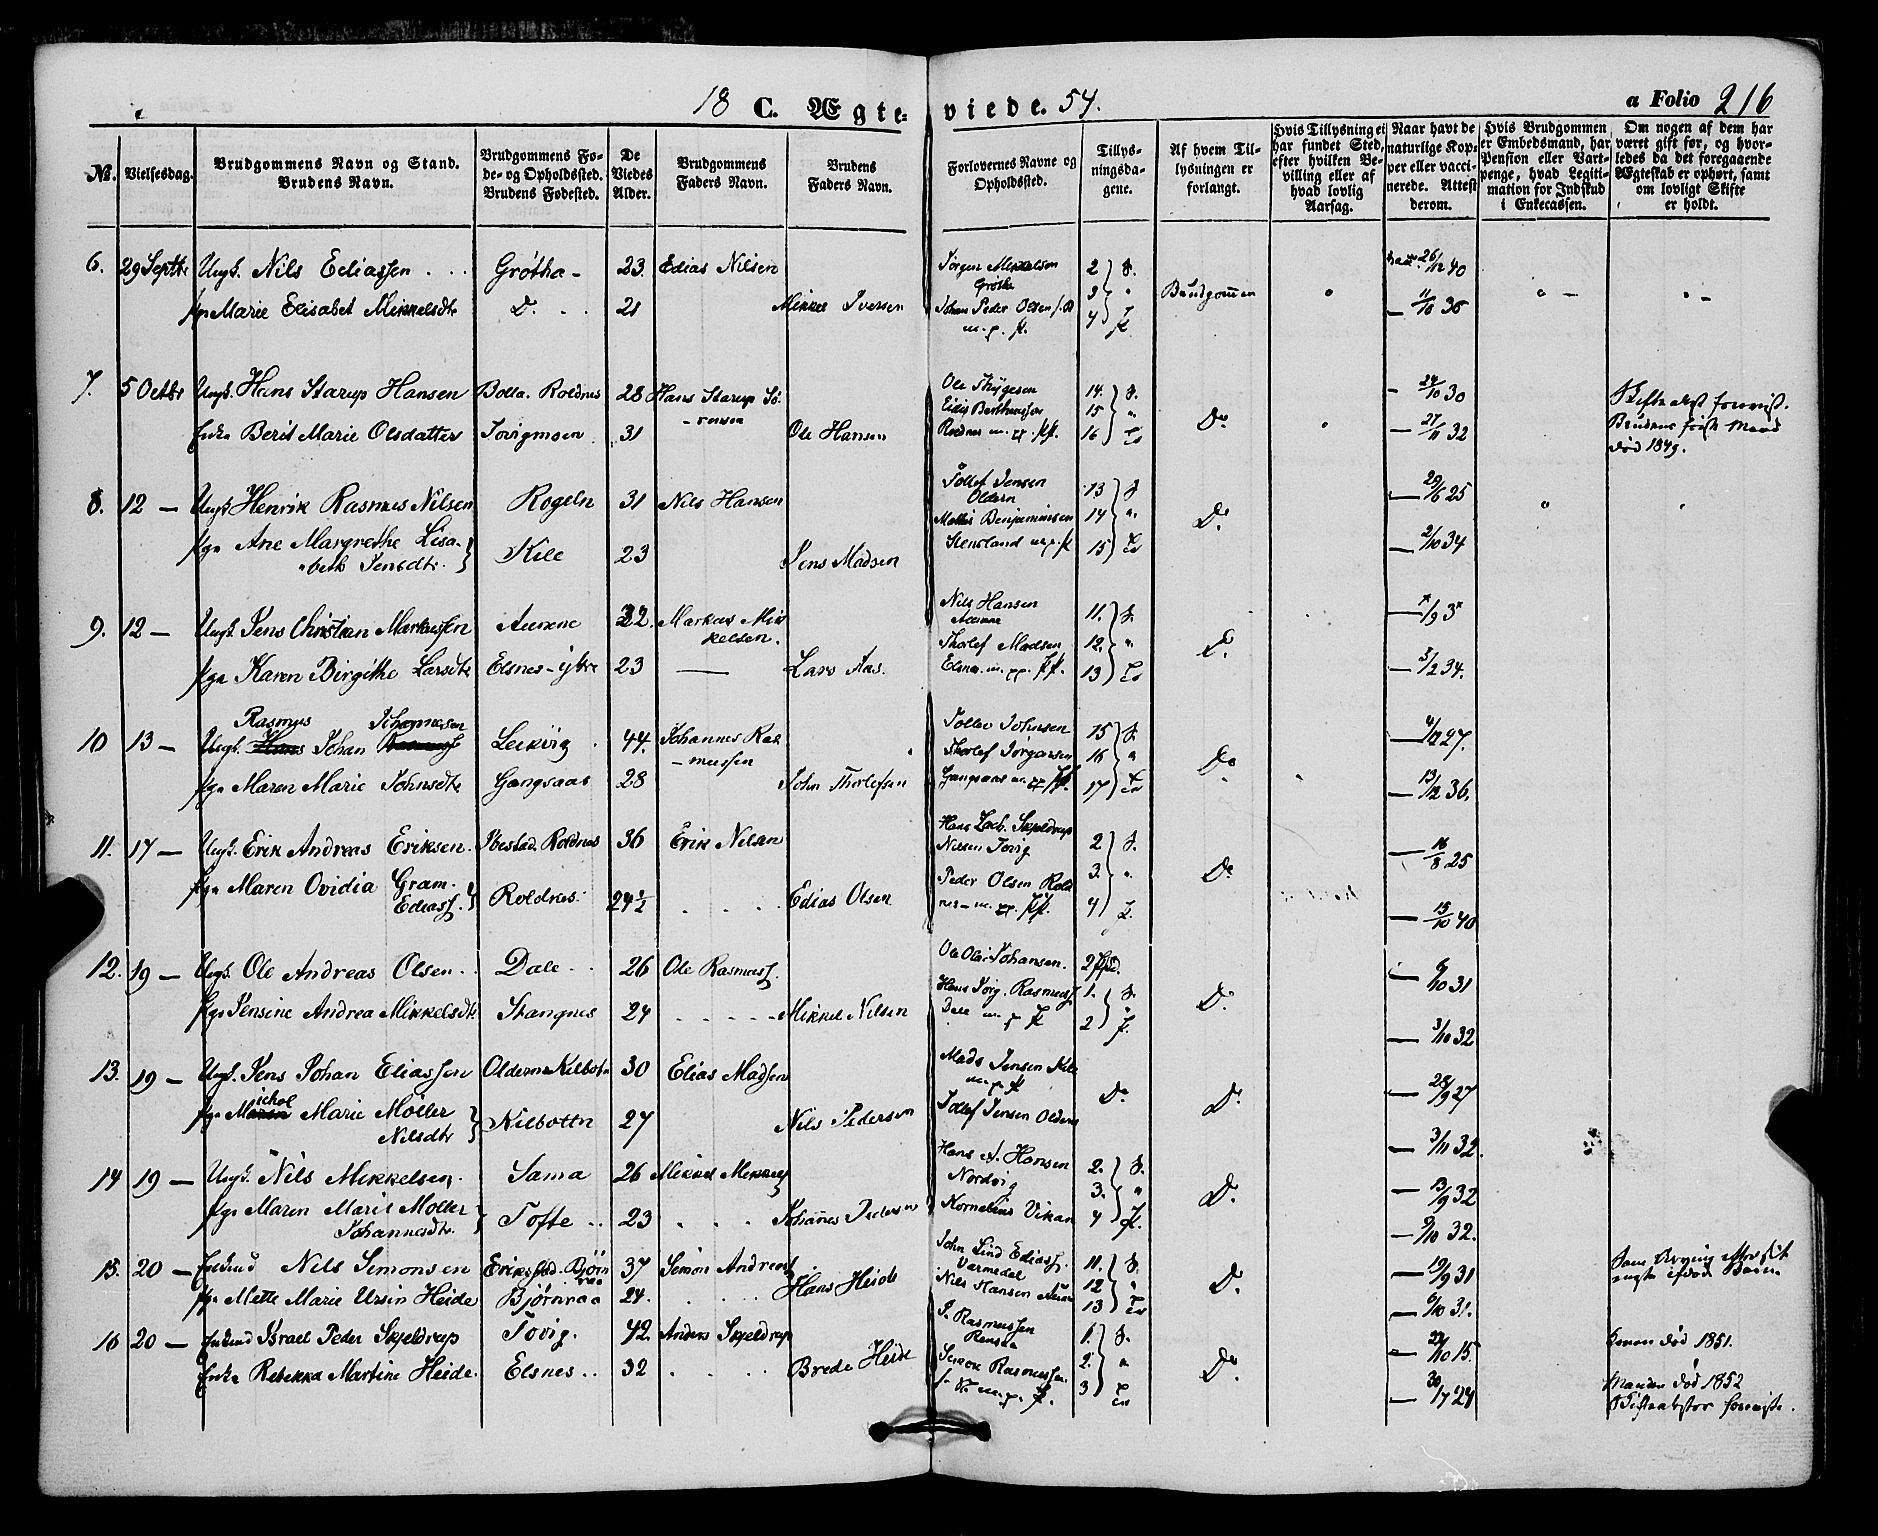 18 C. Ægte-viede. 54.
a Folio 216
No.
Vielsesdag.
Brudgommens Navn og Stand.
Brudens Navn.
Brudgommens Fø-
de- og Opholdssted.
Brudens Fødested.
De
Viedes
Alder.
Brudgommens
Faders Navn.
Brudens
Faders Navn.
Forlovernes Navne og
Opholdssted.
Tillys-
ningsda-
gene.
Af hvem Til-
lysningen er
forlangt.
Hvis Tillysning ei
har fundet Sted,
efter hvilken Be-
villing eller af
hvad lovlig
Aarsag.
Naar havt de
naturlige Kop-
per eller vacci-
nerede. Attest
derom.
Hvis Brudgommen
er Embedsmand, har
Pension eller Vart-
penge, hvad Legiti-
mation for Indskud
i Enkecassen.
Om nogen af dem har
været gift før, og hvor-
ledes da det foregaaende
Ægteskab er ophørt, samt
om lovligt Skifte
er holdt.
6. 29 Septbr Ungk. Nils Ediassen Grøtha 23. Edias Nilsen
Jørgen Mikkelsen 2
Grøtha 3 Brudgommen
26/12 40
pge Marie Elisabet Mikkelsdtr Do. 21 Mikkel Iversen
Johan Peder Olsen 4
11/10 36
7. 5 Octbr Ungk. Hans Starup Hansen Bolla. Roldnes 28 Hans Starup Sø-
rensen
Ole Thygesen 14.
15
24/10 30
Enke Berit Marie Olsdatter 31 Ole Hansen
Roldnes 16 Do
27/11 32
Brudens første Mand
død 1849.
8. 12 — Ungk Henrik Rasmus Nilsen Rogeln 31 Nils Hansen
Tollef Jensen 13
Oldern
Mathis Benjaminsen 14 Do
29/6 25
pge Ane Margrethe Lisa-
beth Jensdtr. Kile 23 Jens Madsen
Stensland 15
2/10 34
9. 12 — Ungk. Jens Christian Markussen Aunene 32. Markus Mik
kelsen.
Nils Hansen 11.
Aunene
Thorlef Madsen 12. Do
pge Karen Birgithe Larsdtr Elsnes-ytre 23 — Lars Aas.
Elsnes 13
3/12 34.
10 13 — Ungk. Rasmus Johan Johannesen Leikvig 44. Johannes Ras
mussen
Tollev Johnsen 15
Thorlef Jørgensen 16 Do
27.
pge Maren Marie Johnsdtr Gangsaas 28 John Thorlefsen
Gangsaas 17
13/12 36.
11. 17 — Ungk. Erik Andreas Eriksen. Ibestad. Roldnes 36 Erik Nilsen
Hans Zach. Skjeldrup 2
Nissen Tovig
16/8 25
pge Maren Ovidia Gram.
Ediass. Roldnes 24½ Edias Olsen
Peder Olsen Rold 3. Do
nes 4
15/10 40
12. 19 — Ungk. Ole Andreas Olsen Dale 26 Ole Rasmuss.
Ole Olai Johansen.
6/10 31
pge Jensine Andrea Mikkelsdtr Stangnes 24 Mikkel Nilsen
Hans Jørg. Rasmuss. 1.
Dale 2 Do
3/10 32
13. 19 — Ungk. Jens Johan Eliassen Oldern Kilbotn 30 Elias Madsen
Mads Jensen Kile
Do. Do.
28/9 27
pge Michol Marie Möller
Nilsdtr Kilbottn 27 Nils Pedersen
Tollef Jensen Oldern
3/11 32.
14 19 — Ungk. Nils Mikkelsen. Sama 26 Mikkel Mikkels
Hans A. Hansen 2.
Nordvig 3. Do.
13/9 32
pge Maren Marie Moller
Johannesdtr. Tofte 23 Johañes Pedersen
Kornelius Vikan 4
9/10 32.
15. 20 — Enkemd Nils Simonsen Erikstad. Bjørn
raa 37 Simon Andreas
John Lind Ediass. 11.
Varmedal
19/9 31
pge Mette Marie Ursin Heide Bjørnraa 24. Hans Heide
Nils Hansen Aune 12 Do.
13
6/10 31.
16 20 — Enkemd Israel Peder Skjeldrup Tovig. 42. Anders Skjeldrup
P. Rasmussen 1.
Rensaa
15.
Konen død 1851.
Enke Rebekka Martine Heide. Elsnes 32 Brede Heide
Simon Rasmussen 2. Do
3
Manden død 1852